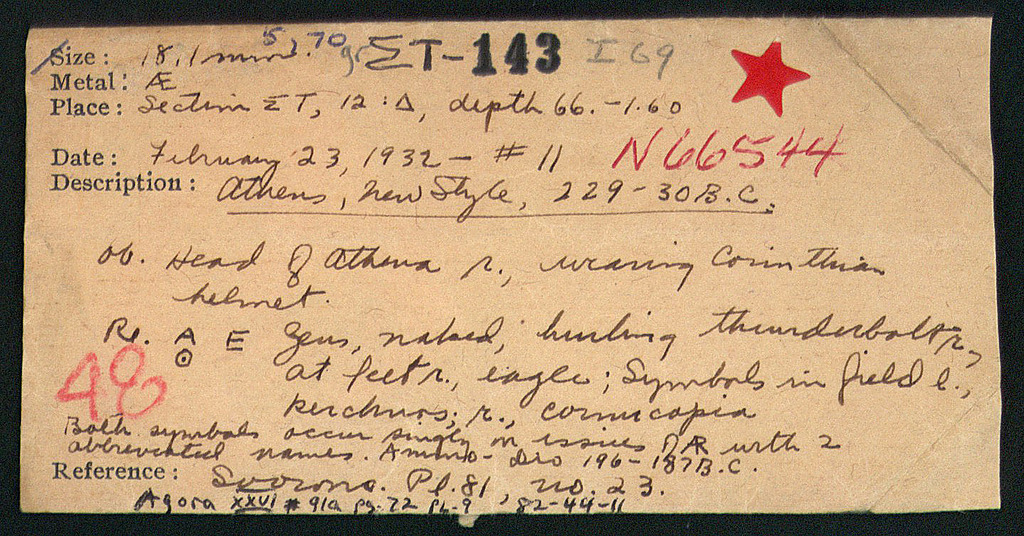 Size: 18.1 mm. 5.70 gr ΣT-143 I 69
Metal: Æ
Place: Section ΣT, 12:Δ, depth 66.-1.60
Date: February 23, 1932 - #11 N66544
Description: Athens, New Style, 229-30 B.C.
ob. Head of Athena r., wearing Corinthian
helmet.
Re. A E Zeus, naked, hurling thunderbolt r.,
Θ at feet r., eagle; Symbols in field l.,
48 kerchnos; r., cornucopia
Both symbols occur singly on issues of AR with 2
abbreviated names. Ammo-Dio 196-187 B.C.
Reference: Svorono. Pl. 81, no. 23.
Agora XXVI #91a pg. 72 pl. 9 82-44-11